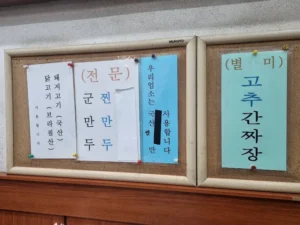 돼지고기 (국산)
닭고기 (브라질산)
(전문)
군만두
찐만두
우리업소는 국산
만
사용합니다
(별미)
고추간짜장